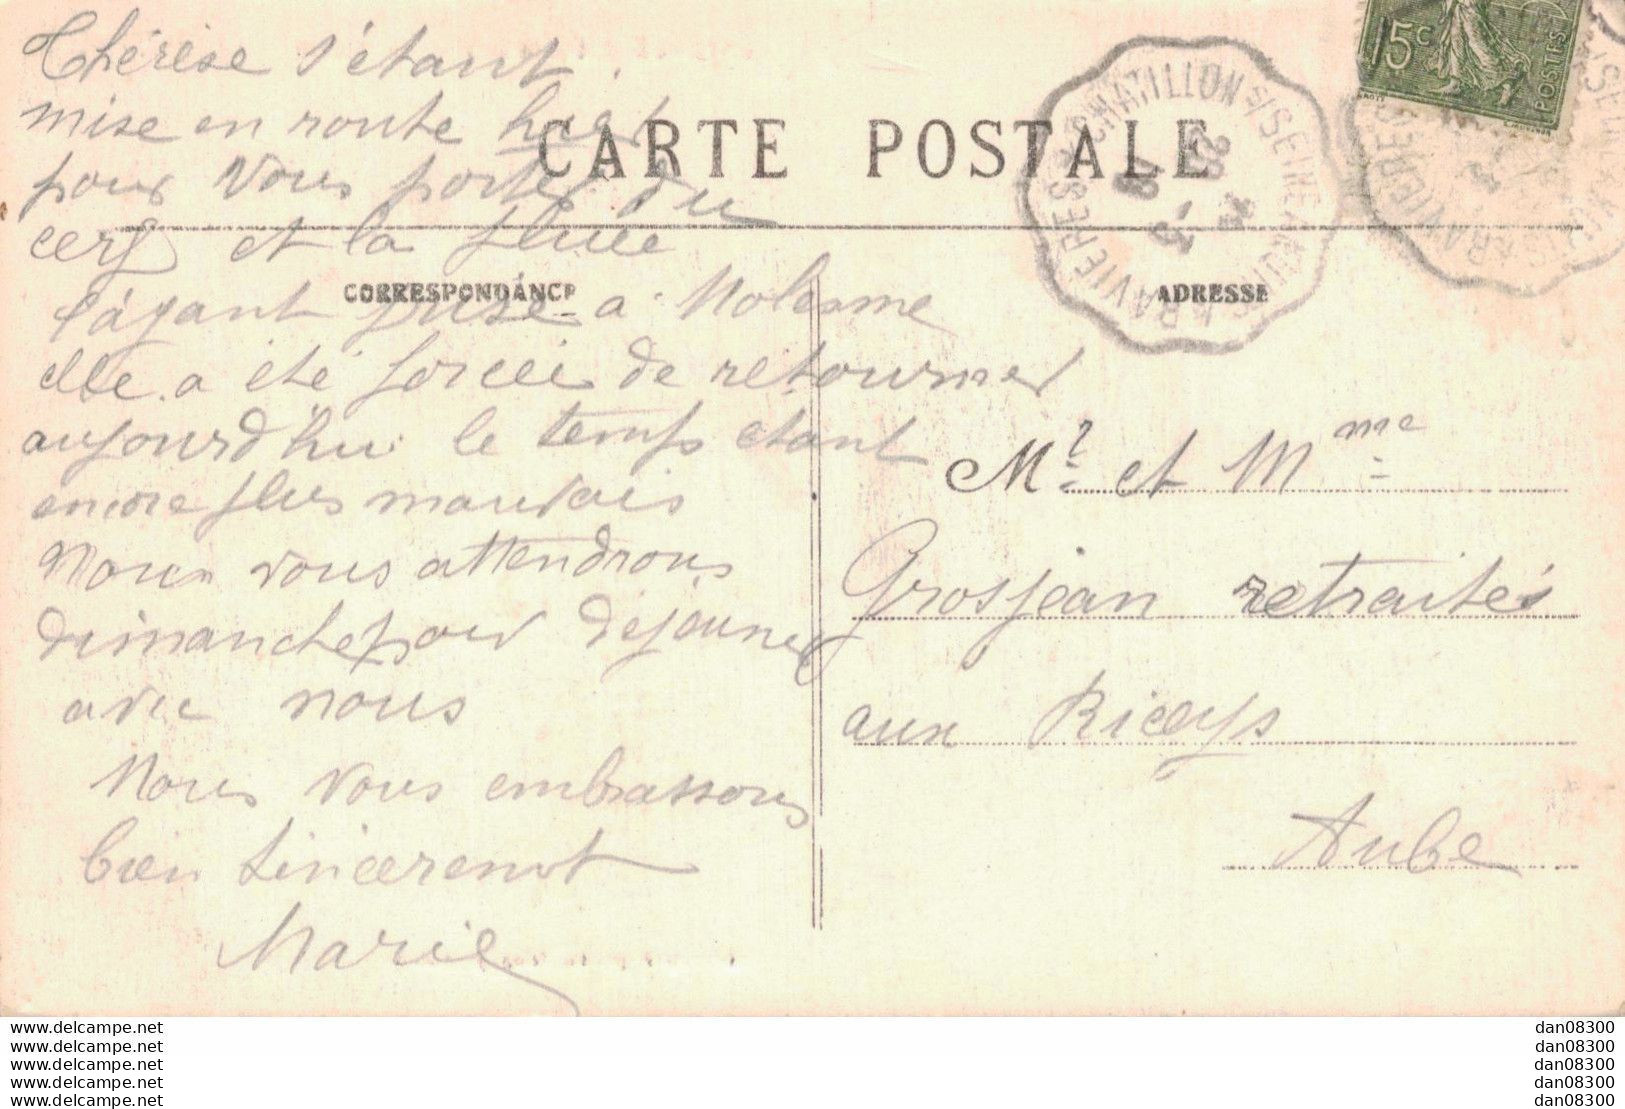 Thérèse s'étant
mise en route hier
pour vous porter du
cerf et la pluie
l'ayant prise à Molesme
elle a été forcée de retourner
aujourd'hui le temps étant
encore plus mauvais
Nous vous attendrons
dimanche pour déjeuner
avec nous
Nous vous embrassons
bien sincerement
Marie
CARTE POSTALE
CORRESPONDANCE
ADRESSE
15c
POSTES
CHATILLON S/SEINE
RAVIERES
Mr et Mme
Grosjean retraités
aux Riceys
Aube
www.delcampe.net
www.delcampe.net
www.delcampe.net
www.delcampe.net
www.delcampe.net
dan08300
dan08300
dan08300
dan08300
dan08300